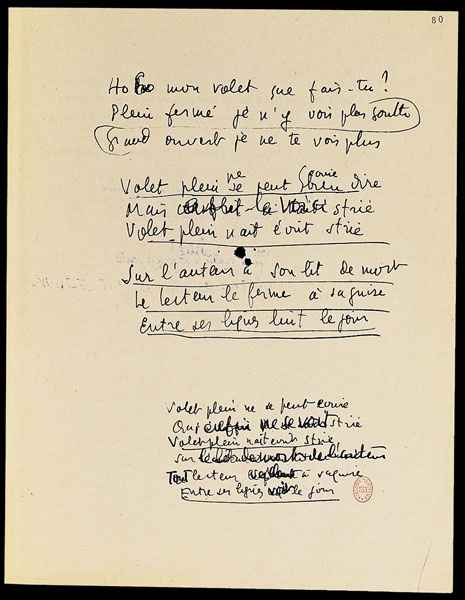 80
Ho mon volet que fais-tu ?
Plein fermé je n'y vois plus goutte
Grand ouvert je ne te vois plus
ne écrire
Volet plein se peut bien dire
Mais strié
Volet plein nait écrit strié
Sur l'auteur à son lit de mort
Le lecteur le ferme à sa guise
Entre ses lignes luit le jour
Volet plein ne se peut écrire
Qui strié
Volet plein nait écrit strié
Sur
Tout lecteur à sa guise
Entre ses lignes le jour